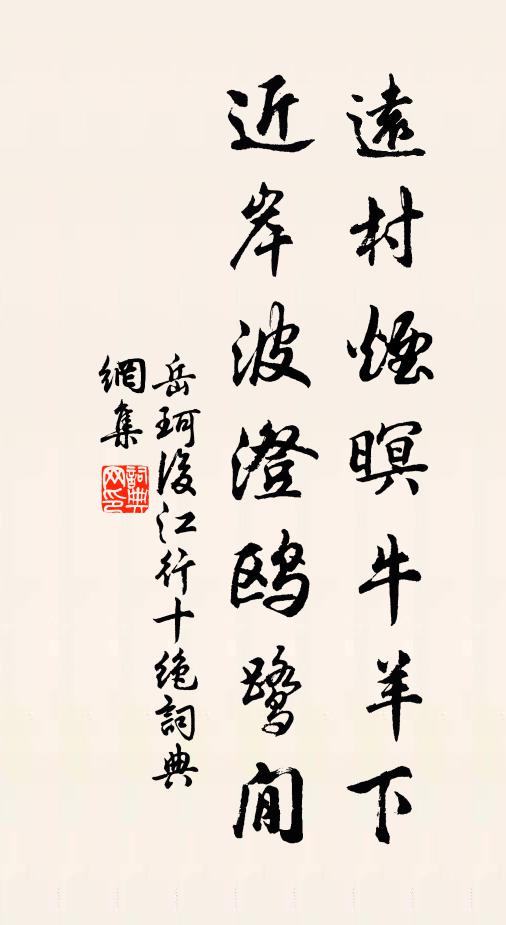 遠村煙暝牛羊下
近岸波澄鸥鷺閒
岳珂後江行十绝詞典
網集
詞典网印